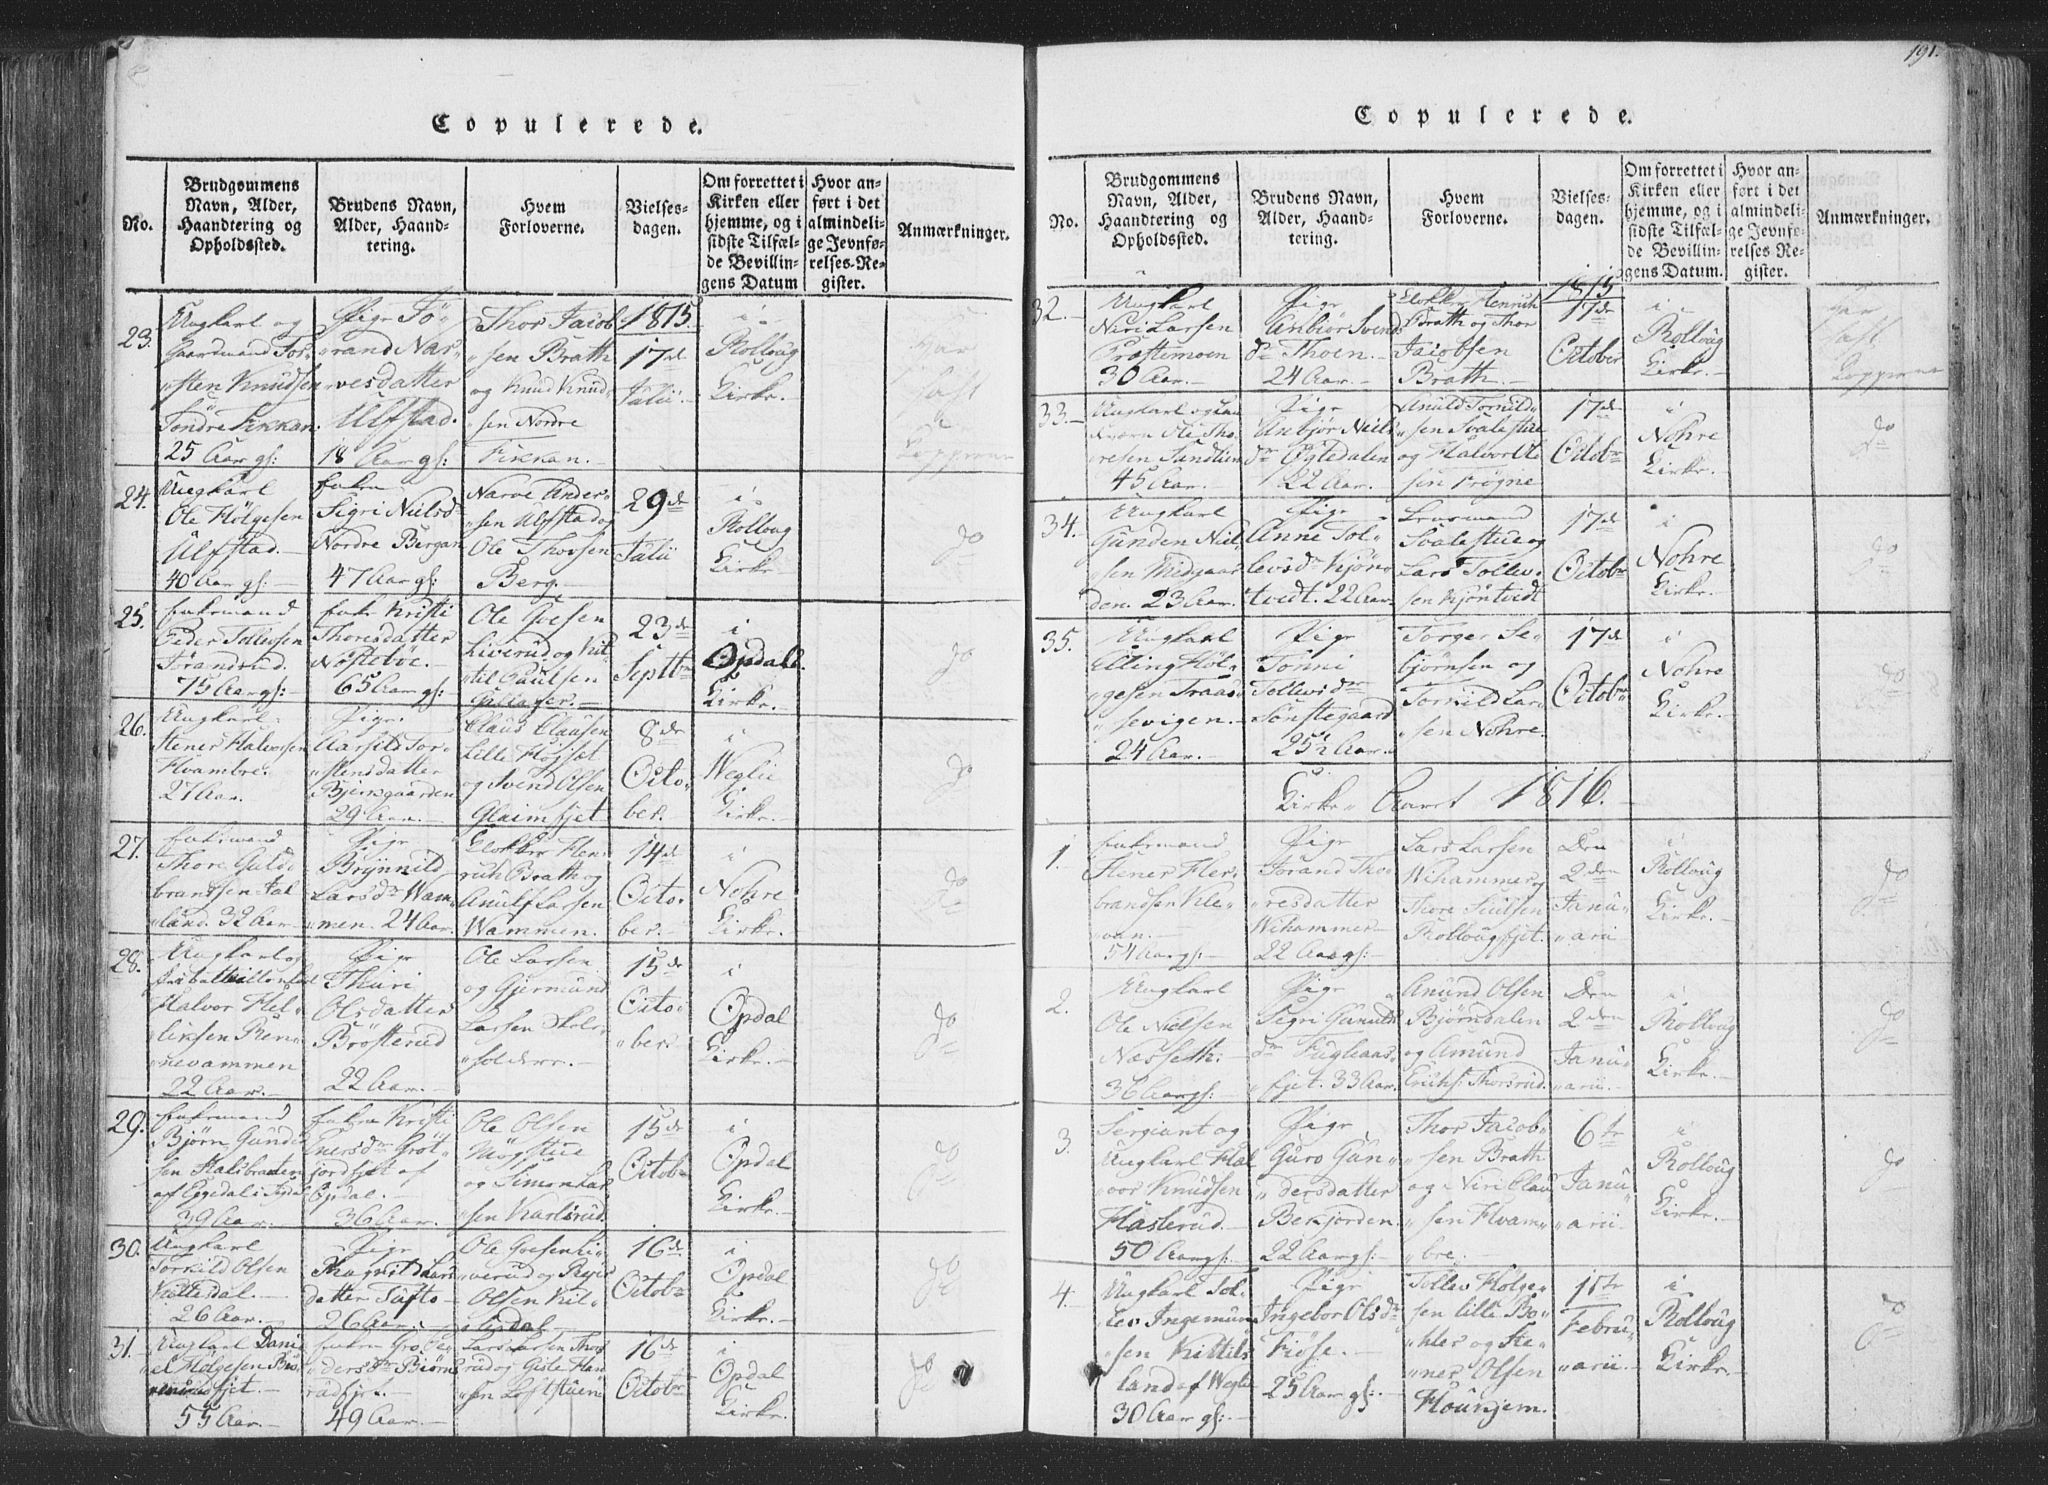 191.
Copulerede.
No.
Brudgommens
Navn, Alder,
Haandtering og
Opholdssted.
Brudens Navn,
Alder, Haand-
tering.
Hvem
Forloverne.
Vielses-
dagen.
Om forrettet i
Kirken eller
hjemme, og i
sidste Tilfæl-
de Bevillin-
gens Datum
Hvor an-
ført i det
almindeli-
ge Jevnfø-
relses-Re-
gister.
Anmærkninger.
23.
Ungkarl og
Gaardmand Tor-
„sten Knudsen
Söndre Fekkan.
25 Aar gl:
Pige Tö-
„rand Nar-
„vesdatter
Ulfstad.
18 Aar gl:
Thor Jacob-
„sen Brath
og Knud Knud-
„sen Nordre
Fekkan.
1815.
17de
Julii
i
Rolloug
Kirke.
Har
haft
Kopperne
24.
Ungkarl
Ole Hölgesen
Ulfstad.
40 Aar gl:
Enke
Sigri Nielsd
Nordre Bergan
47 Aar gl:
Narve Ander-
„sen Ulfstad og
Ole Thorsen
Berg.
29de
Julii
i
Rolloug
Kirke
do
25.
Enkemand
Peder Tollevsen
Strandrud.
75 Aar gl:
Enke Kristi
Thoresdatter
Nösteböe.
65 Aar gl:
Ole Ovesen
Liverud og Kit-
til Paulsen
23de
Septbr
i
Opdals
Kirke.
do
26.
Ungkarl
Stener Halvorsen
Hvambre.
27 Aar.
Pige
Aarsild Tor-
„stensdatter
Bjerkgaarden
29 Aar.
Claus Clausen
Lille Högset
og Svend Olsen
Glaimfjet
8de
Octo-
ber.
i
Weglie
Kirke.
do
27.
Enkemand
Thore Guld-
brandsen Jal
„land. 32 Aar
Pige
Brynnild
Larsdr Wam-
„men. 24 Aar.
Klokker Hen-
rich Brath og
Anulf Larsen
Wammen.
14de
Octo-
ber.
i
Nohre
Kirke.
do
28.
Ungkarl og
Halvor Hel-
liksen Ren-
„nevammen
22 Aar.
Pige
Thuri
Olsdatter
Brösterud
22 Aar.
Ole Larsen
og Gjermund
Larsen Skols-
15de
Octo-
„ber
i
Opdal
Kirke.
do
29.
Enkemand
Björn Gunder
sen Halsbraaten
af Eggedal i Sigdal
39 Aar.
Enke Kristi
Enersdr Gröt-
jordfjet af
Opdal.
36 Aar.
Ole Olsen
Mögstue
og Simon Lar
„sen Karlsrud.
15de
Octobr
i
Opdal
Kirke.
do
30.
Ungkarl
Torkild Olsen
Killisdal.
26 Aar.
Pige
Ragnild Lars
datter Tufto
26 Aar.
Ole Ovesen Li-
„verud og Reier
Olsen Kil-
„lisdal
16de
Octobr
i
Opdal
Kirke.
do
31.
Ungkarl Dani
el Holgesen
55 Aar.
Enke Gro Pe-
dersdr Biörne
rudfjet.
49 Aar.
Lars Larsen Thor
rud og Giste Han
„sen Loftstuen
16de
Octobr
i
Opdal
Kirke.
do
Copulerede.
No.
Brudgommens
Navn, Alder,
Haandtering og
Opholdssted.
Brudens Navn,
Alder, Haand-
tering.
Hvem
Forloverne.
Vielses-
dagen.
Om forrettet i
Kirken eller
hjemme, og i
sidste Tilfæl-
de Bevillin-
gens Datum.
Hvor an-
ført i det
almindeli-
ge Jevnfø-
relses-Re-
gister.
Anmærkninger.
32.
Ungkarl
Niri Larsen
Prostemoen
30 Aar.
Pige
Anbiör Svends
dr Thoen.
24 Aar.
Klokker Henrich
Brath og Thor
Jacobsen
Brath.
1815
17de
October
i
Rolloug
Kirke.
Har
haft
Kopperne
33.
Ole Tho-
resen
45 Aar.
Pige
Anbjör Niels
dr Ögledalen
22 Aar.
Anuld Torkild-
„sen Svalestue
og Halvor Ole
sen Frögne
17de
Octobr
i
Nohre
Kirke.
do
34.
Ungkarl
Gunden Niel
„sen Midgaar
den. 23 Aar.
Pige
Anne Tol-
levsdr Kjön-
tvedt. 22 Aar
Lensmand
Svalestue og
Lars Tollev-
sen Kjöntvedt
17de
Octobr
i
Nohre
Kirke.
do
35.
Ungkarl
Elling Höl-
„gesen Traas-
„sevigen.
24 Aar.
Pige
Tonni
Tollevsdr
Sönstegaard
25½ Aar.
Torger Se-
björnsen og
Torkild Lar-
„sen Nohre.
17de
Octobr
i
Nohre
Kirke.
do
Kirke Aaret 1816.
1.
Enkemand
Stener Her-
brandsen Kle-
„ven.
54 Aar gl:
Pige
Torand Tho-
„resdatter
Wihammer
22 Aar gl:
Lars Larsen
Wihammer og
Thore Siulsen
Rollougfjet.
Den
2den
Janu-
„arii
i
Rolloug
Kirke.
do
2.
Ungkarl
Ole Nielsen
Næsseth.
36 Aar gl:
Pige
Sigri Gunuls
dr Fugleaas-
fjet. 33 Aar.
Anund Olsen
Björndalen
og Amund
Erichs: Thorsrud.
Den
2den
Janu-
„arii.
i
Rolloug
Kirke.
do
3.
Sergiant og
Ungkarl Hal
„vor Knudsen
Haslerud.
50 Aar gl:
Pige
Guro Gun-
„dersdatter
Bekjorden.
22 Aar gl:
Thor Jacob-
„sen Brath
og Niri Clau
„sen Hvam-
„bre.
6te
Janu-
„arii
i
Rolloug
Kirke.
do
4.
Ungkarl Tol-
lev Ingemun
„sen Kittils
land af Weglie
30 Aar gl:
Pige
Ingebor Olsdr
Fiöse.
25 Aar gl:
Tollev Holge-
sen lille Bö-
„hler og Ste-
ner Olsen
Hounjem.
Febru-
„arii.
i
Rolloug
Kirke.
do